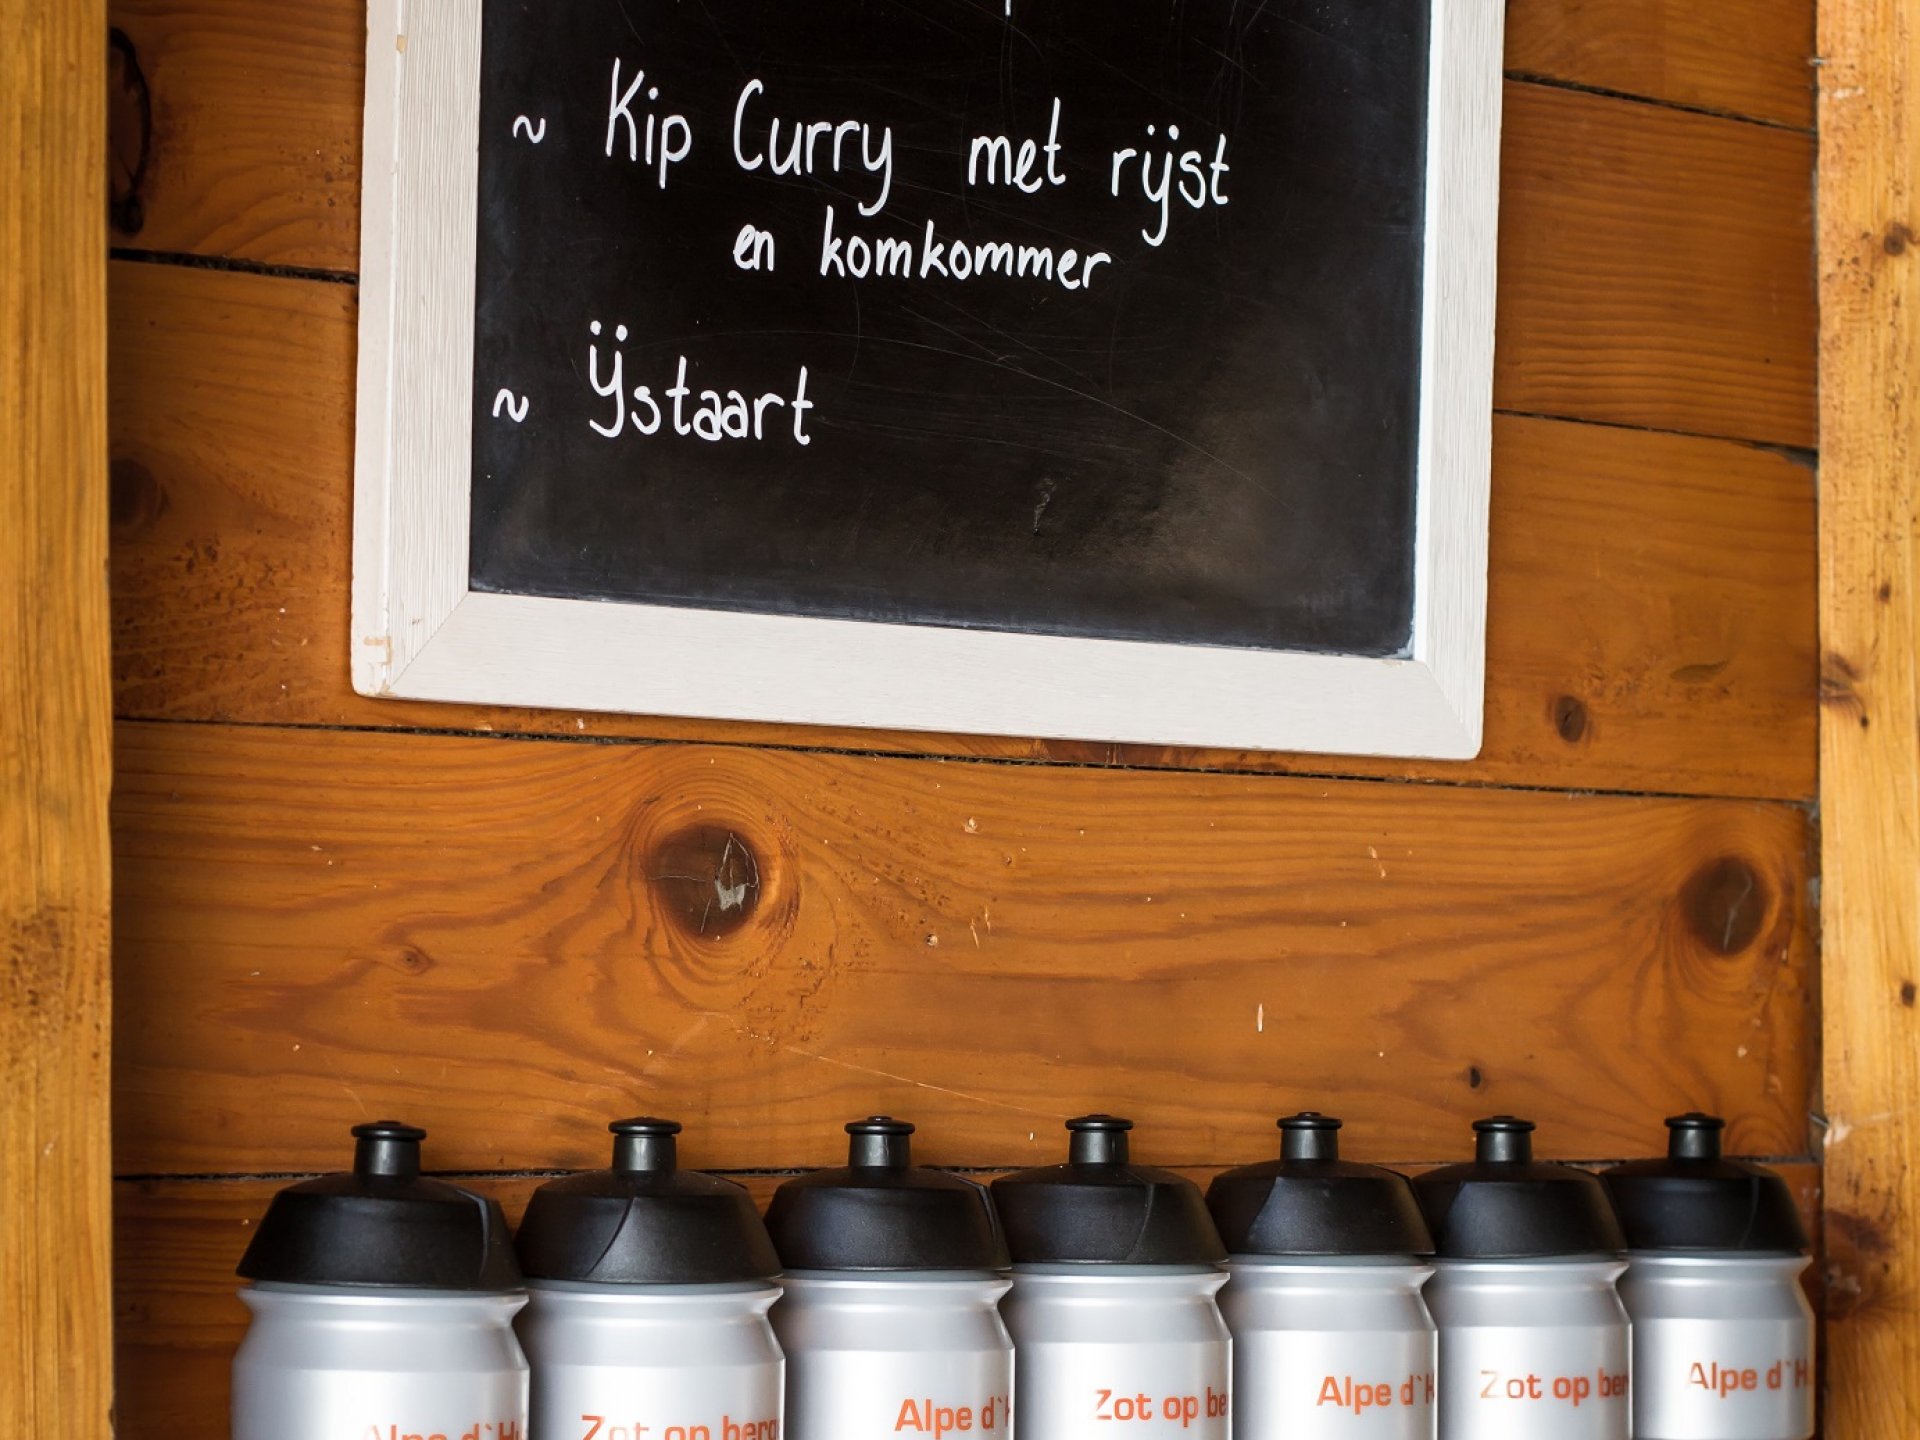 ~ Kip Curry met rijst
en komkommer
~ Ijstaart
Alpe d`Hu
Zot op berg
Alpe d`H
Zot op be
Alpe d`H
Zot op ber
Alpe d`H